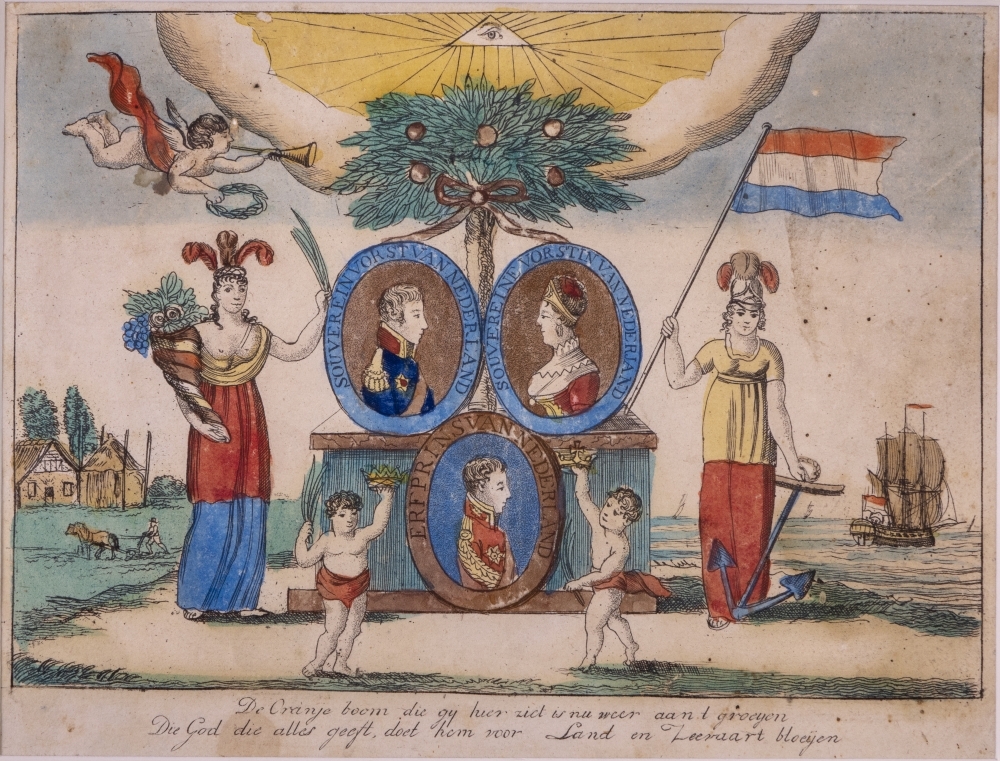 SOUVEREIN VORST VAN NEDERLAND
SOUVEREINE VORSTIN VAN NEDERLAND
ERFPRINS VAN NEDERLAND
De Oranje boom die gy hier ziet is nu weer aan t groeyen
Die God die alles geeft, doet hem voor Land en Zeevaart bloeijen